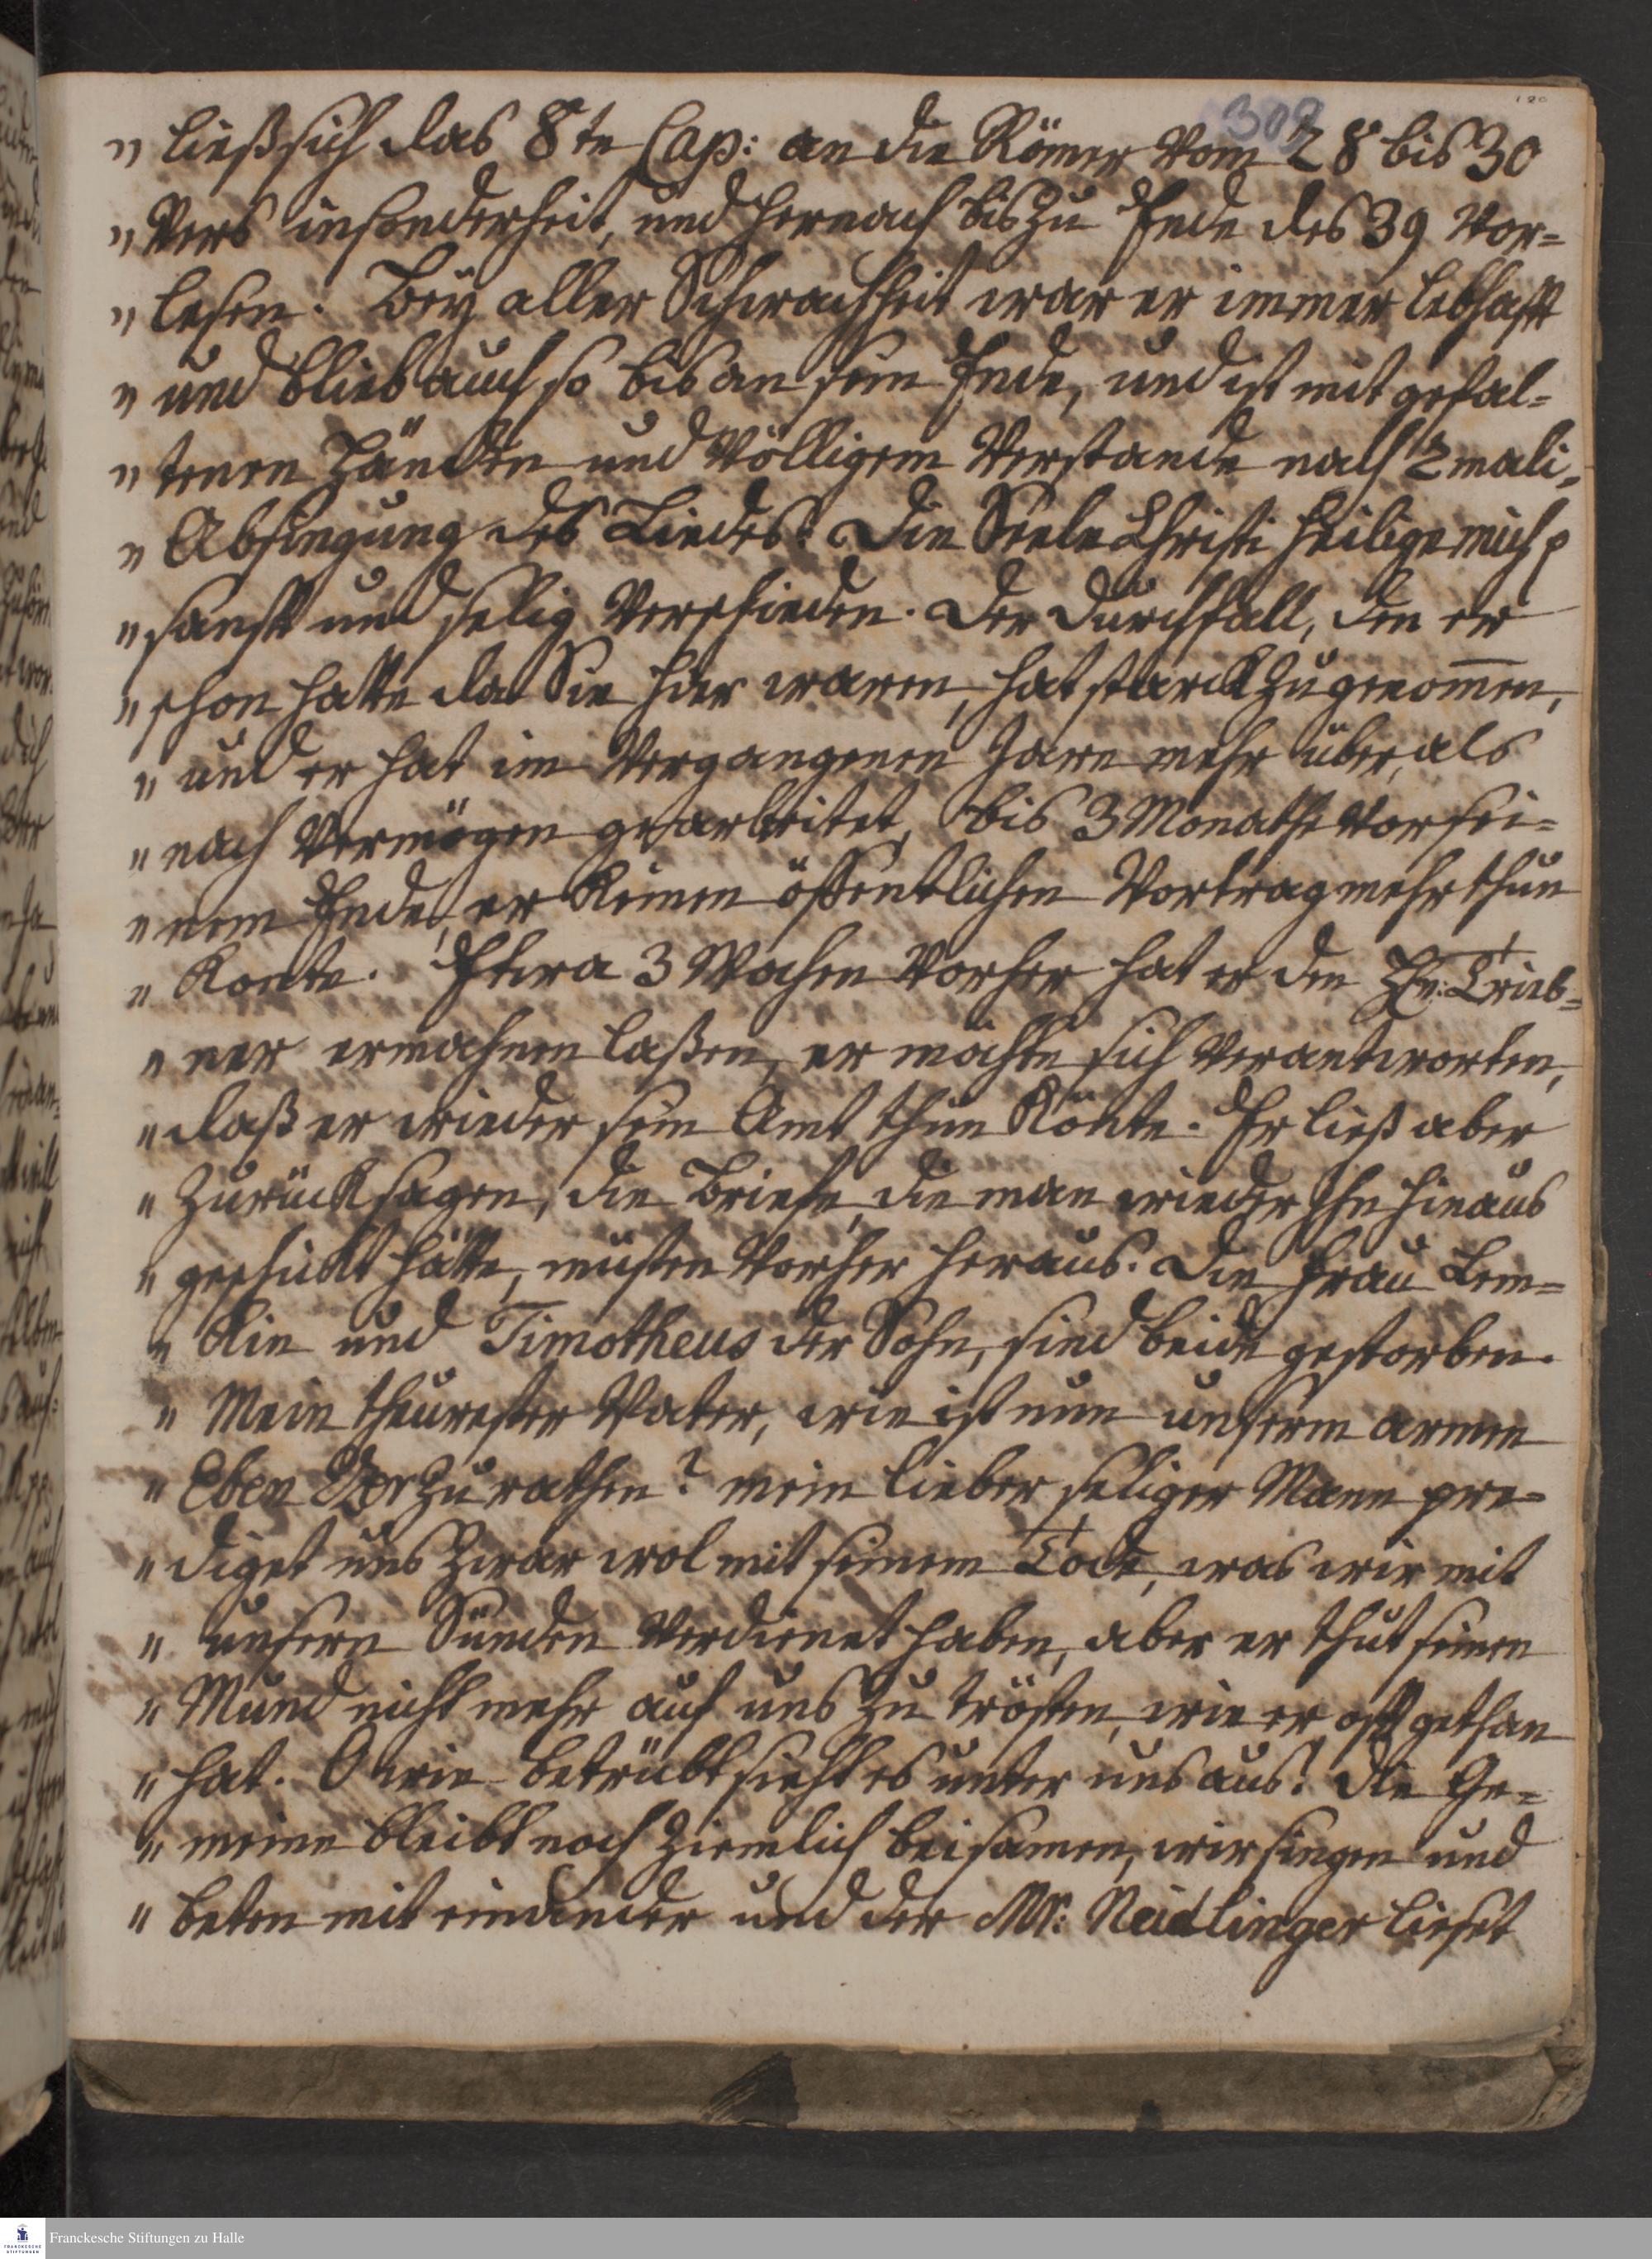 309
" ließ sich das 8te Cap: an die Römer vom 28 bis 30
" Vers insonderheit, und hernach bis zu Ende des 39 vor=
" lesen. Bey aller Schwachheit war er immer lebhafft
" und blieb auch so bis an sein Ende, und ist mit gefal=
" tenen Händen und völligem Verstande nach 2mali,
" Absingung des Liedes: Die Seele Christi heilige mich p
" sanft und selig verschieden. Der Durchfall, den er
" schon hatte da Sie hier waren, hat starck zugenom̅en,
" und er hat im vergangenen Jare mehr über, als
" nach Vermögen gearbeitet, bis 3 Monathe vor sei=
" nem Ende, er keinen öffentlichen Vortrag mehr thun
" konte. Etwa 3 Wochen vorher hat er den Hn: Trieb=
" ner ermahnen laßen, er möchte sich verantworten,
" daß er wieder sein Amt thun könte. Er ließ aber
" zurück sagen, die Briefe, die man wieder Ihn hinaus
" geschickt hätte, müsten vorher heraus. Die Frau Lem=
" kin und Timotheus der Sohn, sind beide gestorben.
" Mein theurester Vater, wie ist nun unserm armen
" Eben Ezer zu rathen? mein lieber seliger Mann pre=
" diget uns zwar wol mit seinem Tode, was wir mit
" unsern Sünden verdienet haben, aber er thut seinen
" Mund nicht mehr auf uns zu trösten, wie er offt gethan
" hat. O wie betrübt sieht es unter uns aus! Die Ge=
" meine bleibt noch ziemlich beisamen, wir singen und
" beten mit einander und der Mr: Neidlinger lieset
Franckesche Stiftungen zu Halle